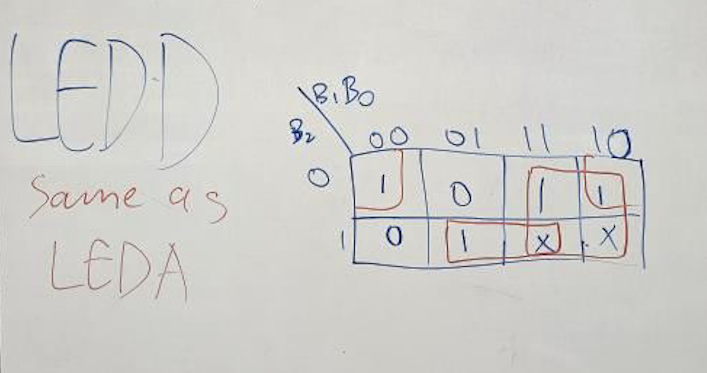 LEDD
same as
LEDA
B₁B₀
B₂
00 01 11 10
0 1 0 1 1
1 0 1 X X